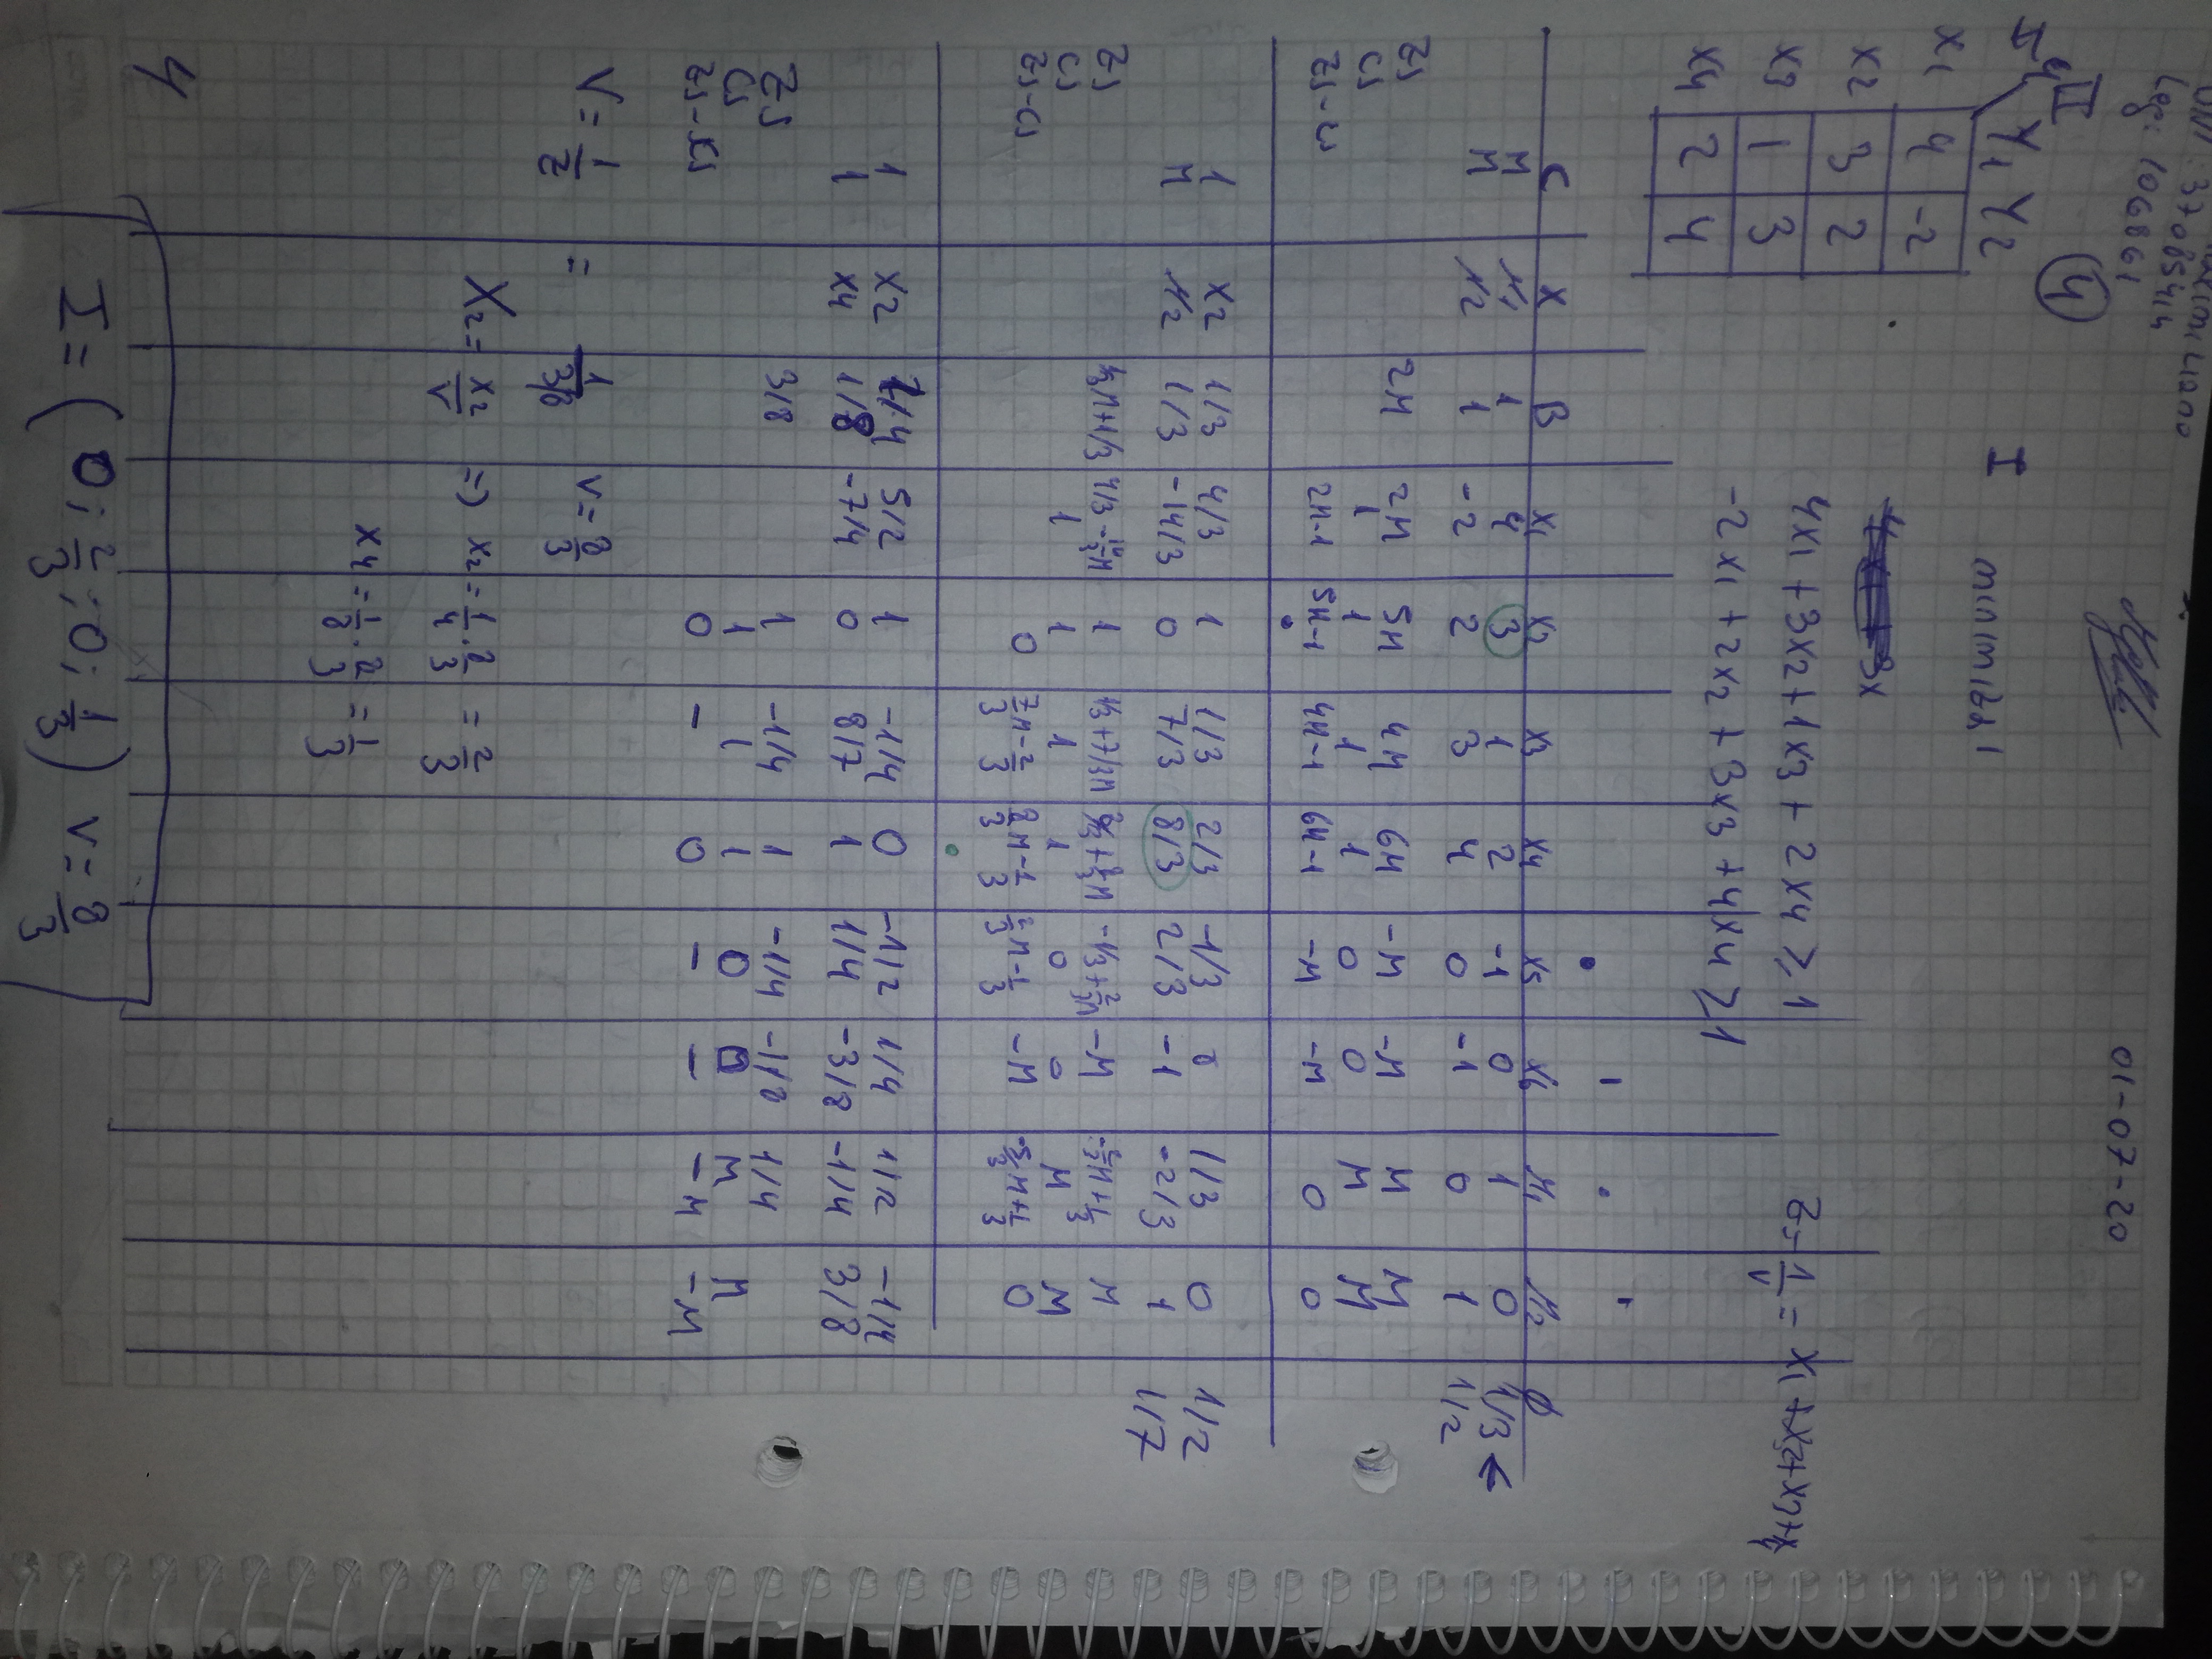 DNI: 37085414
Leg: 106861
01-07-20
II
4
Y1 Y2
X1 4 -2
X2 3 2
X3 1 3
X4 2 4
I minimizar
3x
4x1 + 3x2 + 1x3 + 2x4 ≥ 1
ZJ = 1/V = x1 + x2 + x3 + x4
-2x1 + 2x2 + 3x3 + 4x4 ≥ 1
C X B X1 X2 X3 X4 X5 X6 M1 M2 Φ
M M1 1 4 3 1 2 -1 0 1 0 1/3 ←
M M2 1 -2 2 3 4 0 -1 0 1 1/2
ZJ 2M 2M 5M 4M 6M -M -M M M
CJ 1 1 1 1 0 0 M M
ZJ-CJ 2M-1 5M-1 4M-1 6M-1 -M -M 0 0
1 X2 1/3 4/3 1 1/3 2/3 -1/3 0 1/3 0 1/2
M M2 1/3 -14/3 0 7/3 8/3 2/3 -1 -2/3 1 1/7
ZJ 1/3M+1/3 4/3-14/3M 1 1/3+7/3M 2/3+8/3M -1/3+2/3M -M -2/3M+1/3 M
CJ 1 1 1 1 0 0 M M
ZJ-CJ 0 7/3M-2/3 8/3M-1/3 2/3M-1/3 -M -5/3M+1/3 0
1 X2 1/4 5/2 1 -1/4 0 -1/2 1/4 1/2 -1/4
1 X4 1/8 -7/4 0 8/7 1 1/4 -3/8 -1/4 3/8
ZJ 3/8 1 -1/4 1 -1/4 -1/8 1/4
CJ 1 1 1 0 0 M M
ZJ-CJ 0 - 0 - - -M -M
V = 1/Z = 1/3/8 V = 8/3
X2 = X2/V => X2 = 1/4 . 8/3 = 2/3
X4 = 1/8 . 8/3 = 1/3
4
I = (0; 2/3; 0; 1/3) V = 8/3